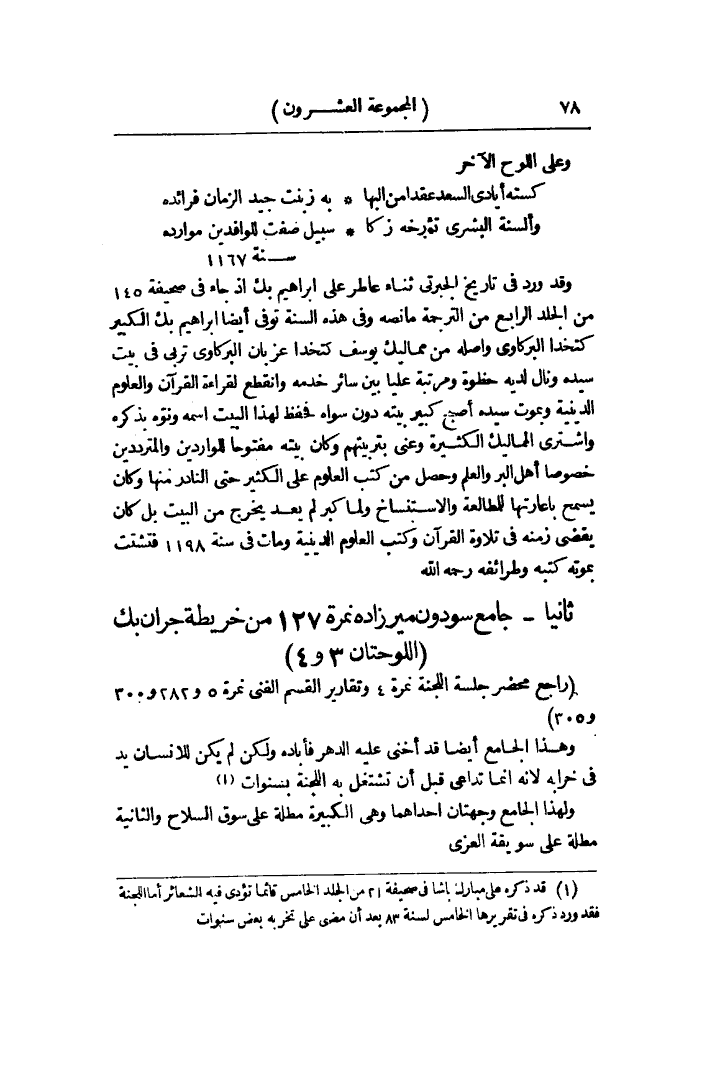 ٧٨ (المجموعة العشرون)
وعلى اللوح الآخر
كسته أيادى السعد عقدا من البها * به زينت جيد الزمان فرائده
وألسنة البشرى تؤرخه زكا * سبيل صفت للوافدين موارده
سنة ١١٦٧
وقد ورد فى تاريخ الجبرتى ثناء عاطر على ابراهيم بك اذ جاء فى صحيفة ١٤٥
من الجلد الرابع من الترجمة مانصه وفى هذه السنة توفى أيضا ابراهيم بك الكبير
كتخدا البركاوى واصله من مماليك يوسف كتخدا عزبان البركاوى تربى فى بيت
سيده ونال لديه حظوة ومرتبة عليا بين سائر خدمه وانقطع لقراءة القرآن والعلوم
الدينية وبموت سيده أصبح كبير بيته دون سواه فحفظ لهذا البيت اسمه ونوّه بذكره
واشترى المماليك الكثيرة وعنى بتربيتهم وكان بيته مفتوحا للواردين والمترددين
خصوصا أهل البر والعلم وحصل من كتب العلوم على الكثير حتى النادر منها وكان
يسمح باعارتها للطالعة والاستنساخ ولما كبر لم يعد يخرج من البيت بل كان
يقضى زمنه فى تلاوة القرآن وكتب العلوم الدينية ومات فى سنة ١١٩٨ فتشتت
بموته كتبه وطرائفه رحمه الله
ثانيا - جامع سودون ميرزاده نمرة ١٢٧ من خريطة جران بك
(اللوحتان ٣ و ٤)
(راجع محضر جلسة اللجنة نمرة ٤ وتقارير القسم الفنى نمرة ٥ و ٢٨٢ و ٣٠٠
و ٣٠٥)
وهذا الجامع أيضا قد أخنى عليه الدهر فأباده ولكن لم يكن للانسان يد
فى خرابه لانه انما تداعى قبل أن تشتغل به اللجنة بسنوات (١)
ولهذا الجامع وجهتان احداهما وهى الكبيرة مطلة على سوق السلاح والثانية
مطلة على سويقة العزى
(١) قد ذكره على مبارك باشا فى صحيفة ٢١ من الجلد الخامس قائما تؤدى فيه الشعائر أما اللجنة
فقد ورد ذكره فى تقريرها الخامس لسنة ٨٣ بعد أن مضى على تخربه بعض سنوات